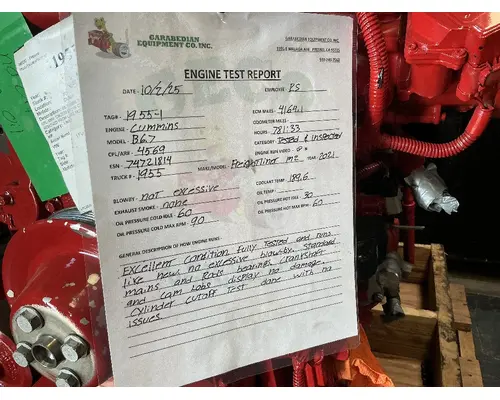 GARABEDIAN
EQUIPMENT CO. INC.
GARABEDIAN EQUIPMENT CO. INC.
ENGINE TEST REPORT
DATE- 10/2/25
EMPLOYEE- PS
TAG# 1955-1
ECM MILES- 41641.1
ENGINE- Cummins
ODOMETER MILES-
MODEL- B6.7
HOURS- 781:33
CPL/AR# - 4569
CATEGORY- Tested & Inspected
ESN - 74721814
ENGINE RUN VIDEO?
TRUCK #- 1955
MAKE/MODEL- Freightliner M2 YEAR 2021
BLOWBY- not excessive
COOLANT TEMP 189.6
EXHAUST SMOKE - none
OIL TEMP
OIL PRESSURE COLD IDLE 60
OIL PRESSURE HOT IDLE 30
OIL PRESSURE COLD MAX RPM- 90
OIL PRESSURE HOT MAX RPM- 60
GENERAL DESCRIPTION OF HOW ENGINE RUNS-
Excellent Condition fully tested and runs
like new no excessive blowby. Standard
mains and Rods bearings. Crankshaft
and cam lobs display no damage.
Cylinder cutoff test done with no
issues.